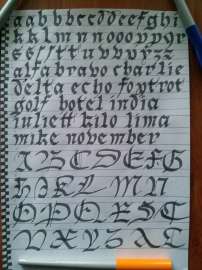 a a b b b c c d d e e f g h i
k k l m n n o o o v p p q r
s s ſ ſ t t u v v w y z z
alfa bravo charlie
delta echo foxtrot
golf hotel india
juliett kilo lima
mike november
A B C D E F G
H I K L M N
O P Q R S T
V X Y Z